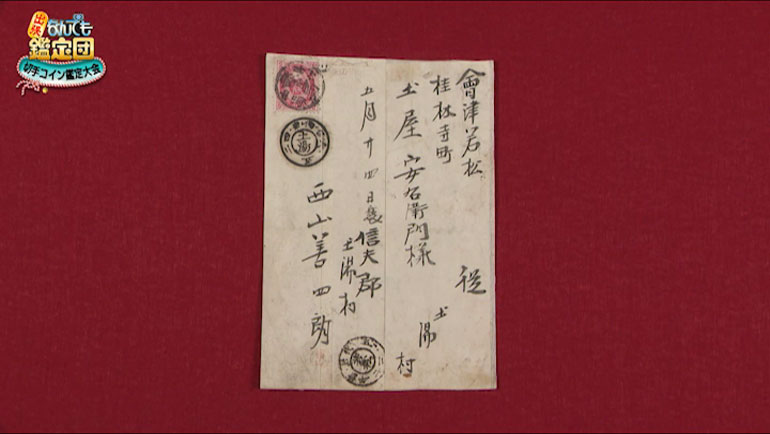 出張なんでも
鑑定団
切手コイン鑑定大会
會津若松
桂林寺町
土屋安右衛門様
従
土湯
村
五月廿四日
信夫郡
土湯村
西山善四郎
土湯